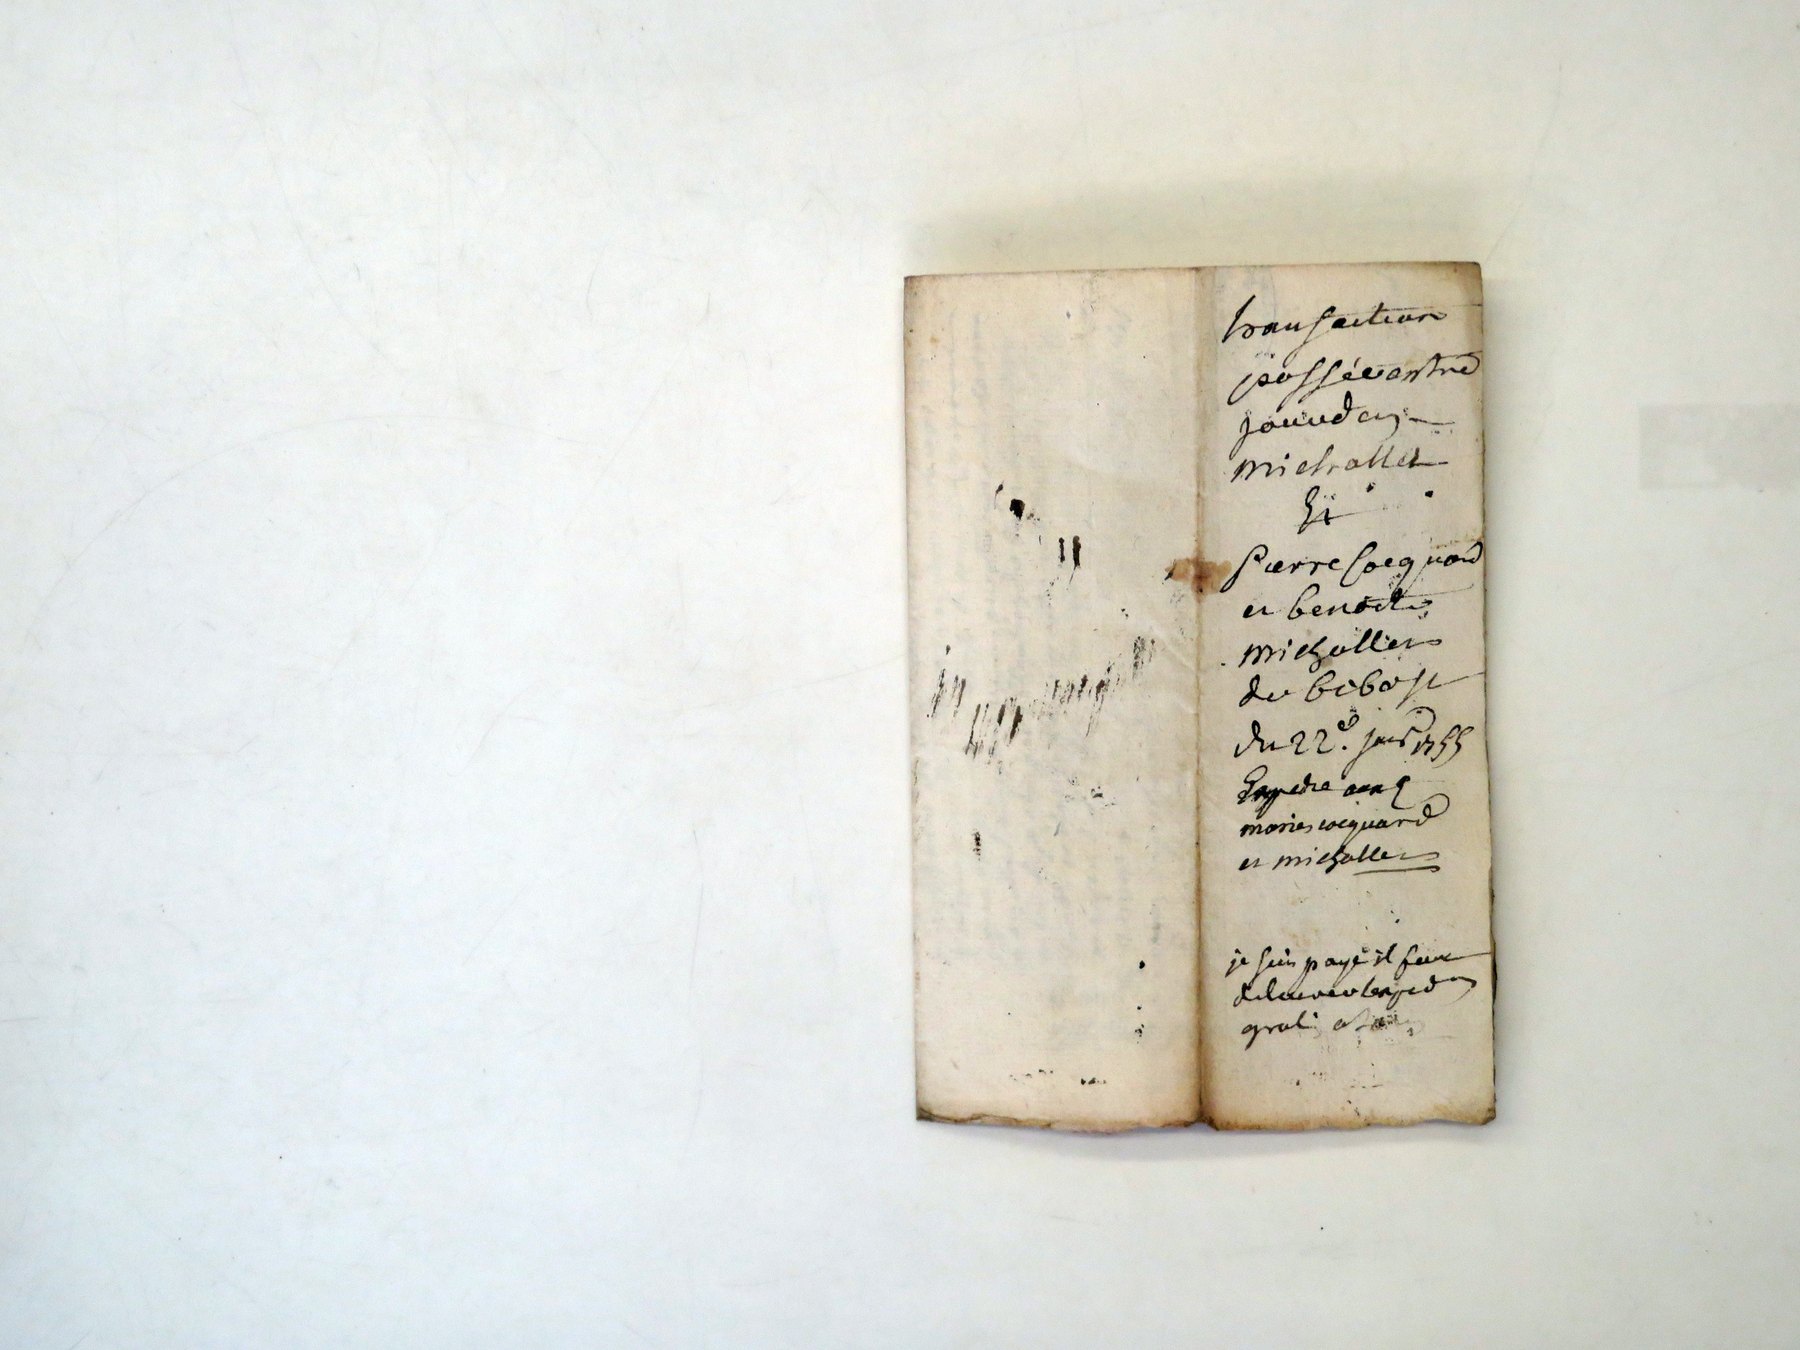 transaction
passée entre
Jourdan
michallet
Et
Pierre Cocquard
et benoite
michallet
de bibost
du 22e. janr 1755
Expedié aux
mariés cocquard
et michallet
je suis payé il faut
delivrer l'exped on
gratis